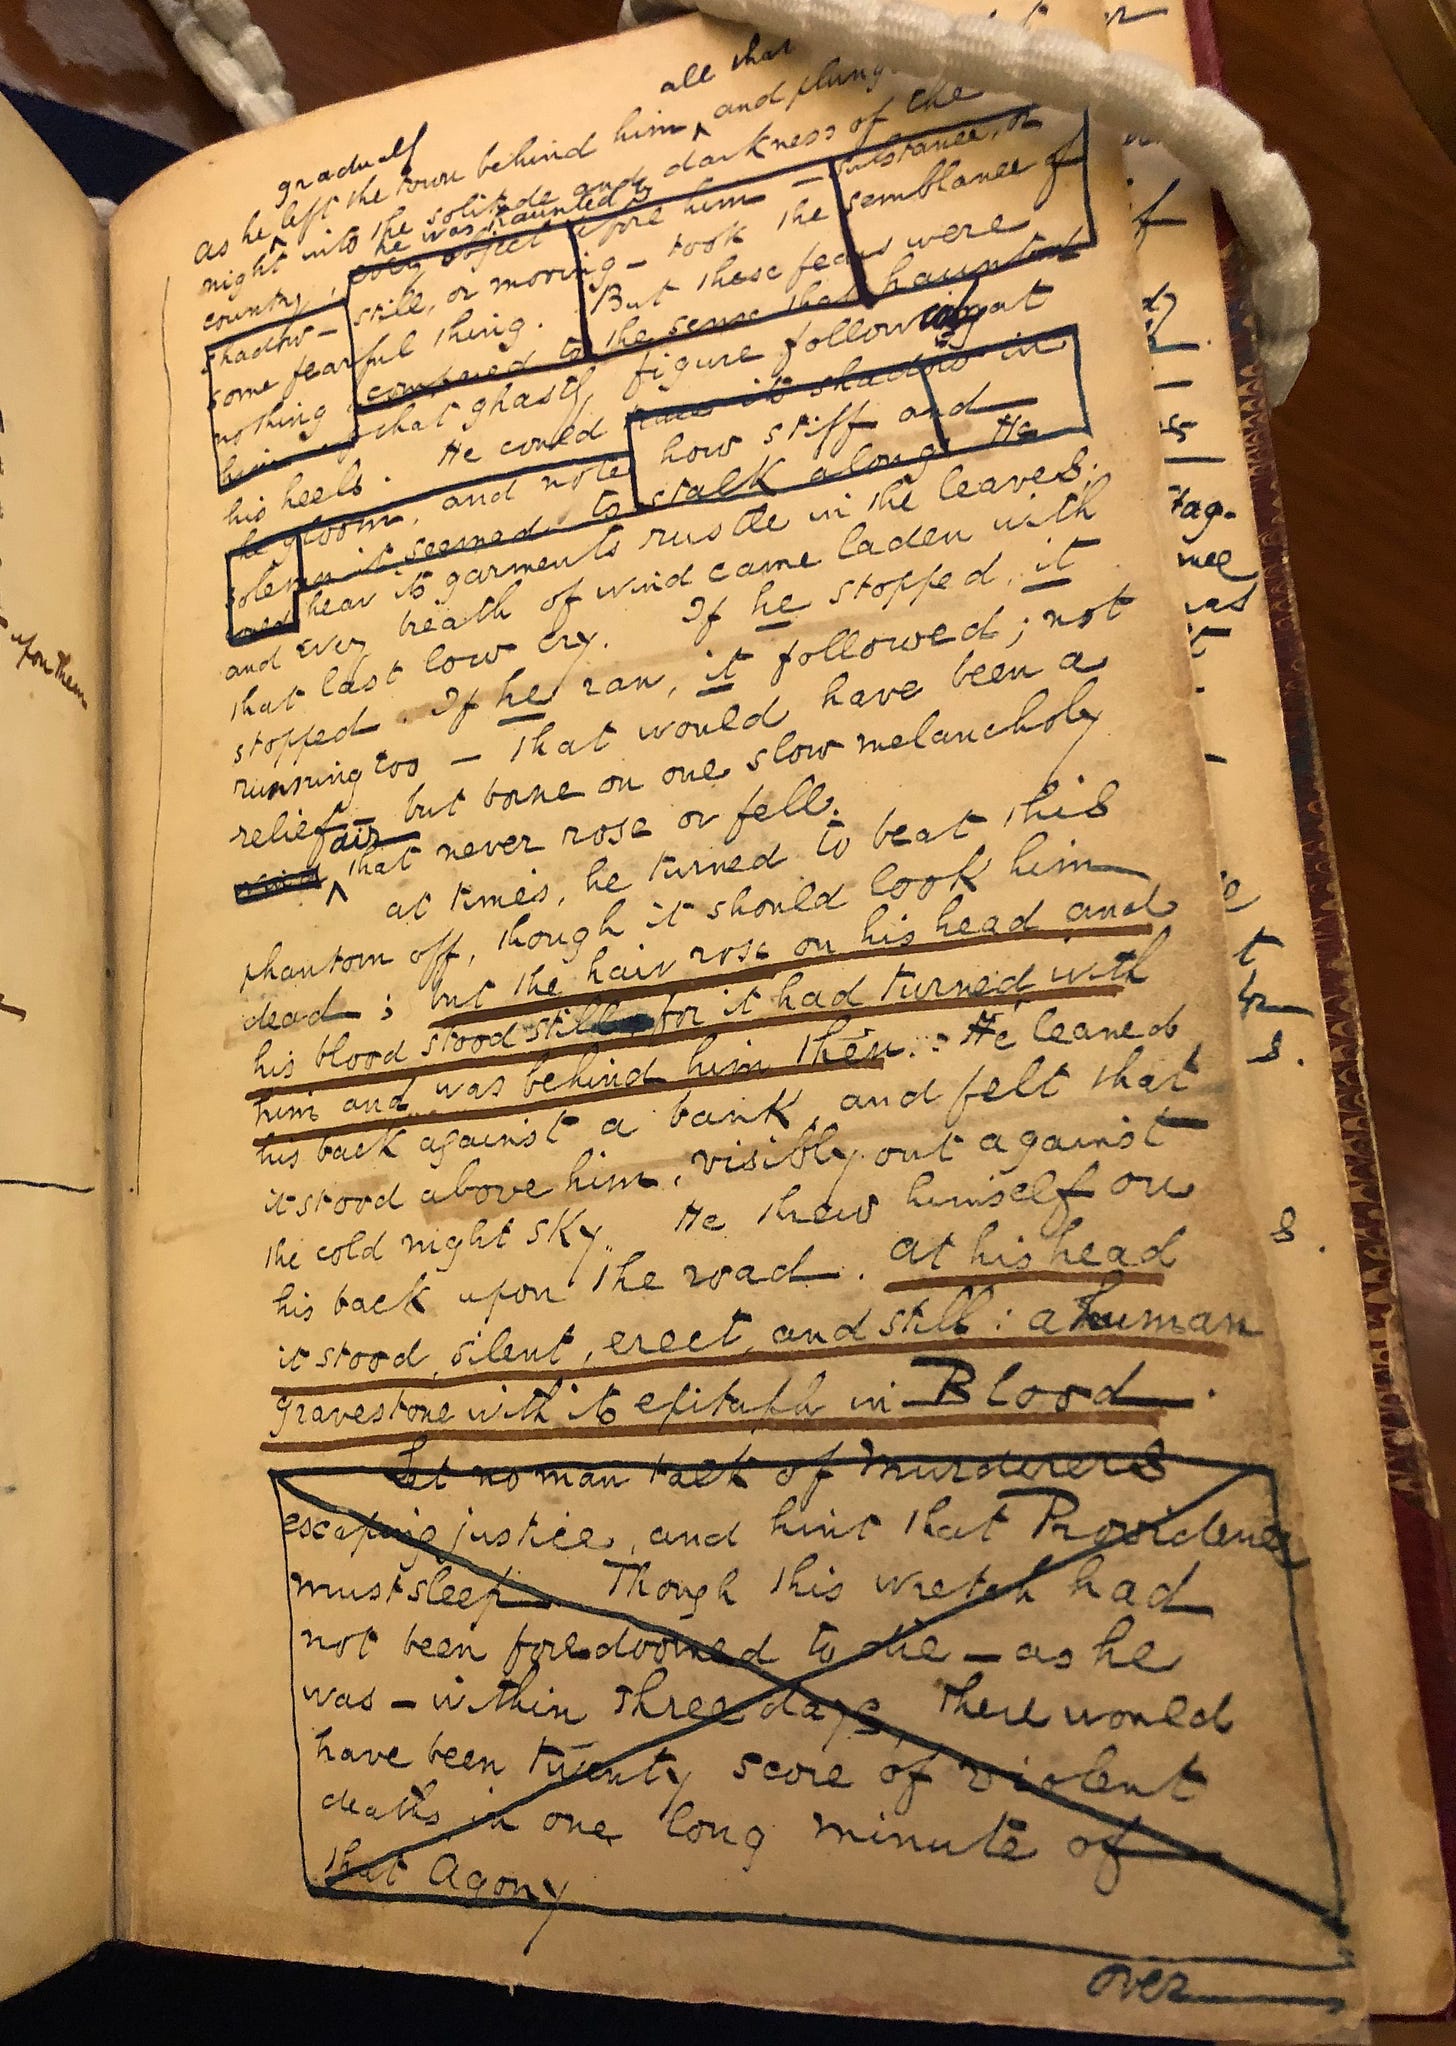 all that
gradually
as he left the town behind him ^ and plung
night into the solitude and darkness of the
he was haunted by
country, every object before him — substance, or
shadow — still, or moving — took the semblance of
some fearful thing. But these fears were
nothing compared to the sense that haunted
him of that ghastly figure following at
his heels. He could trace its shadow in
the gloom, and note how stiff and
solemn it seemed to stalk along. He
could hear its garments rustle in the leaves;
and every breath of wind came laden with
that last low cry. If he stopped, it
stopped. If he ran, it followed; not
running too — that would have been a
relief — but borne on one slow melancholy
air
wind ^ that never rose or fell.
at times, he turned to beat this
phantom off, though it should look him
dead; but the hair rose on his head and
his blood stood still, for it had turned with
him and was behind him then. He leaned
his back against a bank, and felt that
it stood above him, visibly out against
the cold night sky. He threw himself on
his back upon the road. at his head
it stood, silent, erect, and still: a human
gravestone with its epitaph in Blood.
Let no man talk of murderers
escaping justice, and hint that Providence
must sleep. Though this wretch had
not been foredoomed to die — as he
was — within three days, there would
have been twenty score of violent
deaths in one long minute of
that Agony
over
upon them